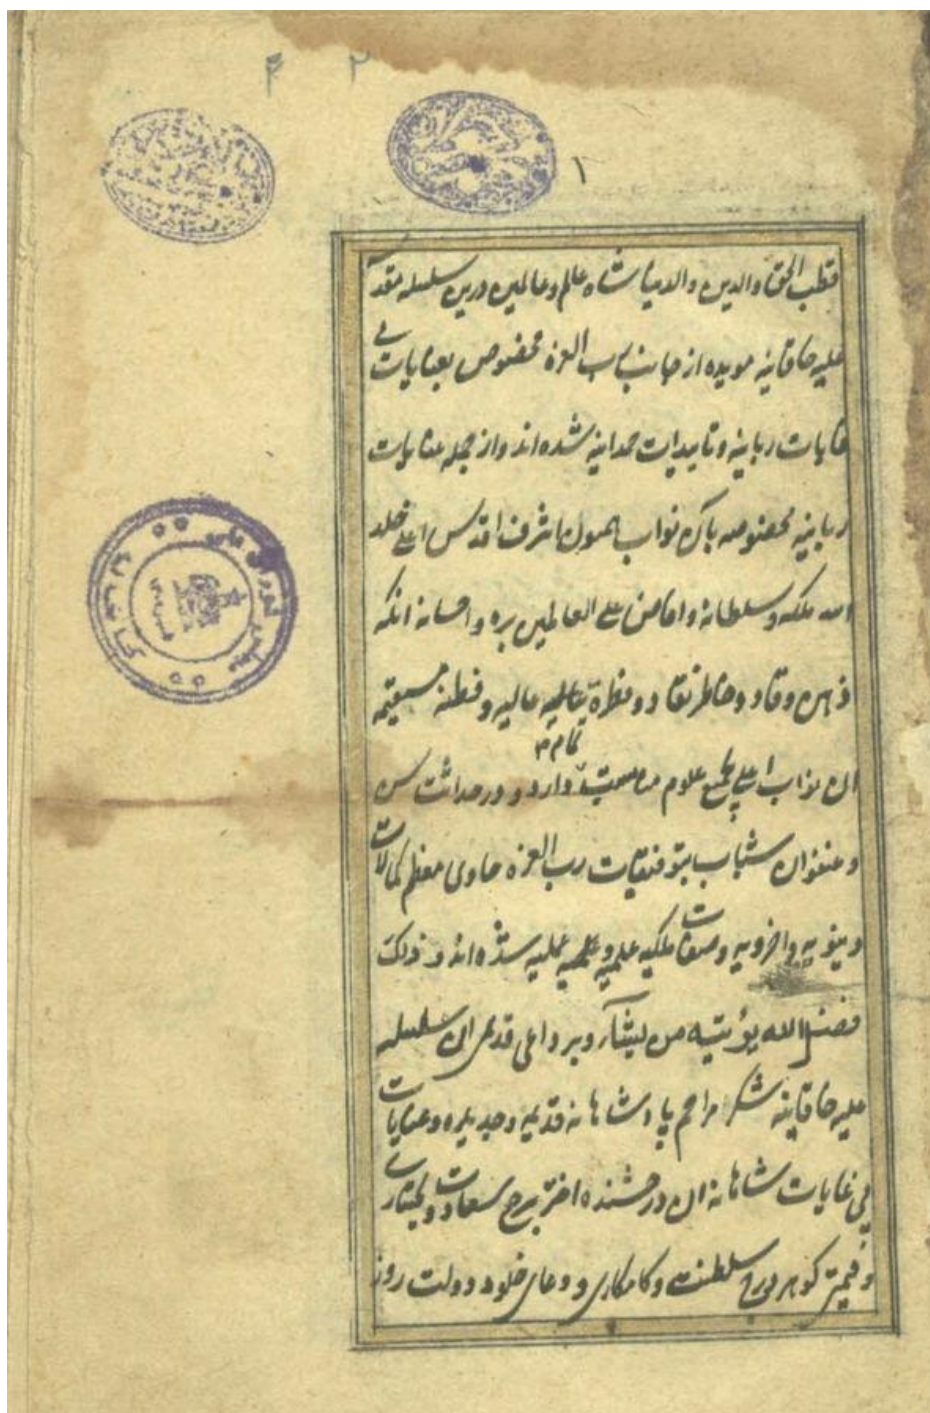 ۲ ۴
۱
قطب الحق والدین والدنیا شاه علم و عالمین درین سلسله مقد
علیه خاقانیه مویده از جانب رب العزه مخصوص بعنایات بی
غایات ربانیه و تاییدات صمدانیه شده اند و از جمله عنایات
ربانیه مخصوصه باکن نواب همیون اشرف اقدس اعلی خلد
الله ملکه و سلطانه و افاض علی العالمین بره و احسانه انکه
ذهن وقاد و خاطر نقاد و فطرة عالیه و فطنه مستقیمه
ان نواب اعلی بجمیع علوم مناسبت تمام دارد و در حداثت سن
و عنفوان شباب بتوفیقات رب العزه حاوی معظم کمالات
دینویه و اخرویه و صفات ملکیه علمیه و عملیه شده اند و ذلک
فضل الله یؤتیه من یشآء و بر داعی قدیمی این سلسله
علیه خاقانیه شکر مراحم پادشاهانه قدیمه و جدیده و عنایات
بی غایات شاهانه ان درخشنده اختر برج سعادت و بختیاری
و قیمتی کوهر درج سلطنت و کامکاری و دعای خلود دولت روز